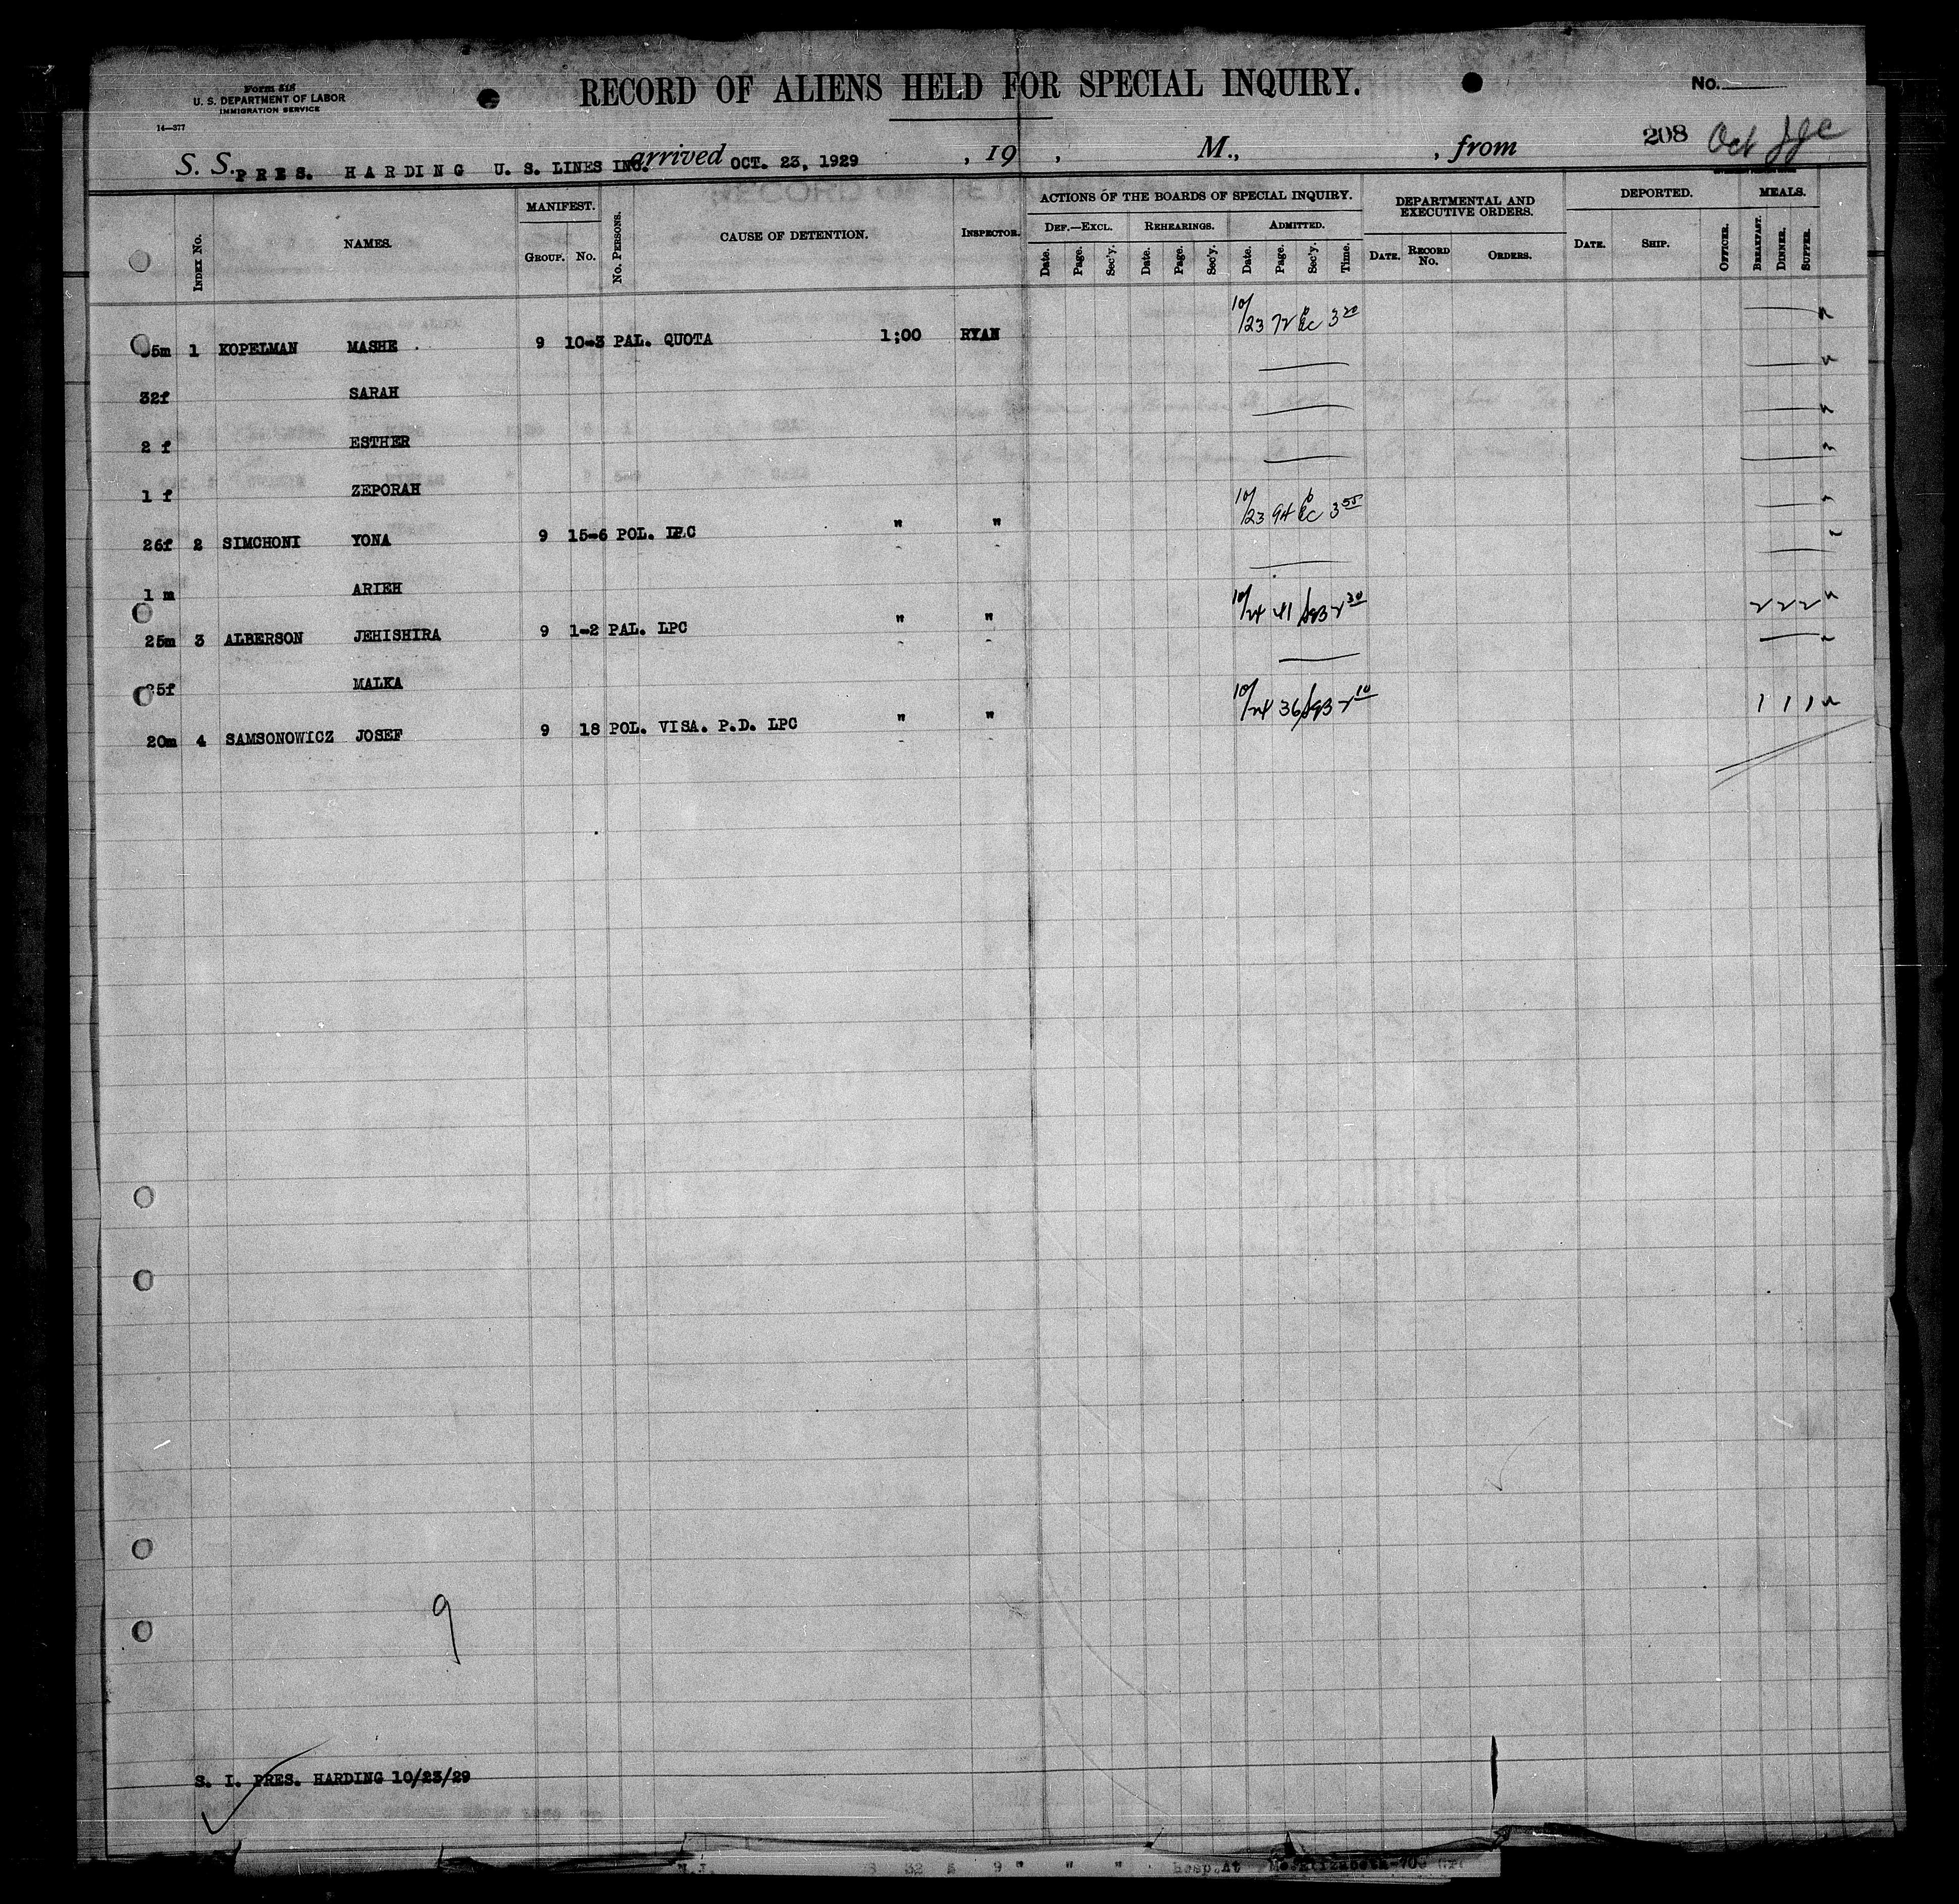 Form 518
U. S. DEPARTMENT OF LABOR
IMMIGRATION SERVICE
14—377
RECORD OF ALIENS HELD FOR SPECIAL INQUIRY.
No.
208 Oct
S. S. PRES. HARDING U. S. LINES INC. arrived OCT. 23, 1929 , 19 , M., , from
INDEX No. NAMES. MANIFEST. GROUP. No. No. PERSONS. CAUSE OF DETENTION. INSPECTOR. ACTIONS OF THE BOARDS OF SPECIAL INQUIRY. DEPARTMENTAL AND EXECUTIVE ORDERS. DEPORTED. MEALS.
DEF.—EXCL. REHEARINGS. ADMITTED.
Date. Page. Sec'y. Date. Page. Sec'y. Date. Page. Sec'y. Time. DATE. RECORD No. ORDERS. DATE. SHIP. OFFICER. BREAKFAST. DINNER. SUPPER.
5m 1 KOPELMAN MASHE 9 10-3 PAL. QUOTA 1;00 RYAN 10/23 72 3 20
32f SARAH
2 f ESTHER
1 f ZEPORAH
26f 2 SIMCHONI YONA 9 15-6 POL. LPC " " 10/23 94 3 55
1 m ARIEH
25m 3 ALBERSON JEHISHIRA 9 1-2 PAL. LPC " " 10/24 41 2 30 2 2 2
25f MALKA
20m 4 SAMSONOWICZ JOSEF 9 18 POL. VISA. P.D. LPC " " 10/24 36 2 10 1 1 1
9
S. I. PRES. HARDING 10/23/29
32 9 " " " Hosp.At